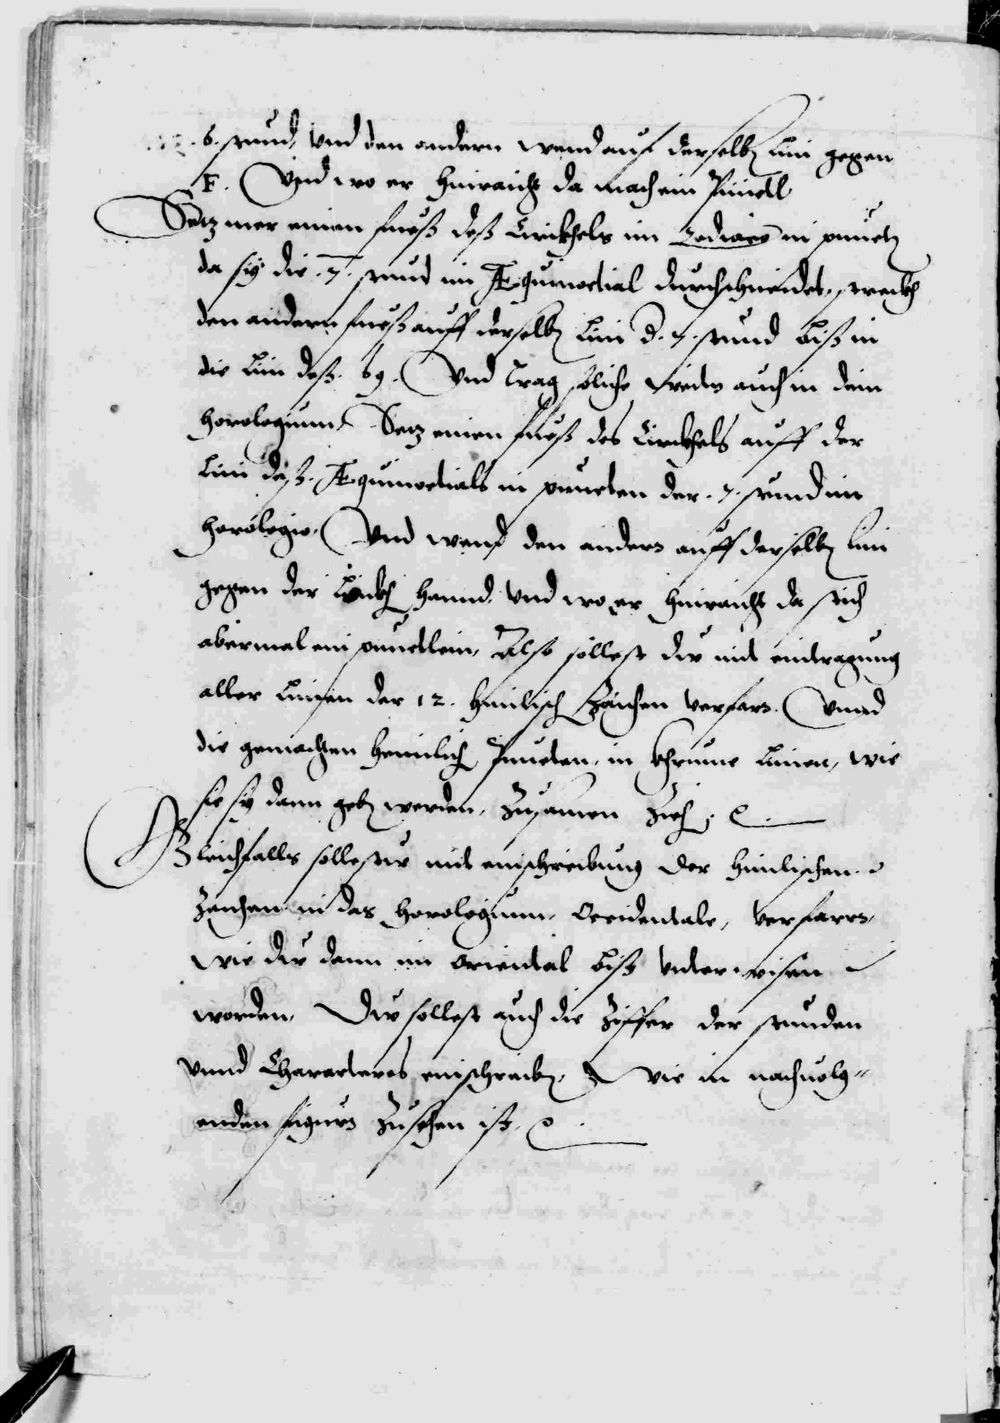 .6. stund, Vnd den andern wend auf derselbs Lini gegen
F. Vnd wo er hinraicht da mach ein Punctl
Setz mer einen fueß deß Circkhels im Zodiaco in punct
da sÿ die .7. stund im Æquinoctial durchschneidet, streckh
den andern fueß auff derselbs Lini d. 7. stund biß in
die Lini deß. 69. Vnd Trag söliche weiten auch in dein
horologium. Setz einen fueß des Circkhels auff der
Lini deß. Æquinoctials in puncten der .7. stund im
horologio. Vnd wend den andern auff derselbs lini
gegen der Linckh hannd, Vnd wo er hinraicht da stich
abermal ein punctlein, Also sollest du mit eintragung
aller Linien der 12. himlisch Zaichen verfarn. Vnnd
die gemachten heimlich Puncten, in khrume Linien, wie
sie sÿ dann gebn werden, Zusamen Zieh,
Gleichfalls sollestu mit einschreibung der himlischen
Zaichen in das horologium, Occidentale, verfarrn,
wie du dann im oriental biß vnterwisen
worden, Du sollest auch die Ziffer der stunden
vnnd Characteres einschreibn, Wie in nachuolg=
enden figurn Zusehen ist.